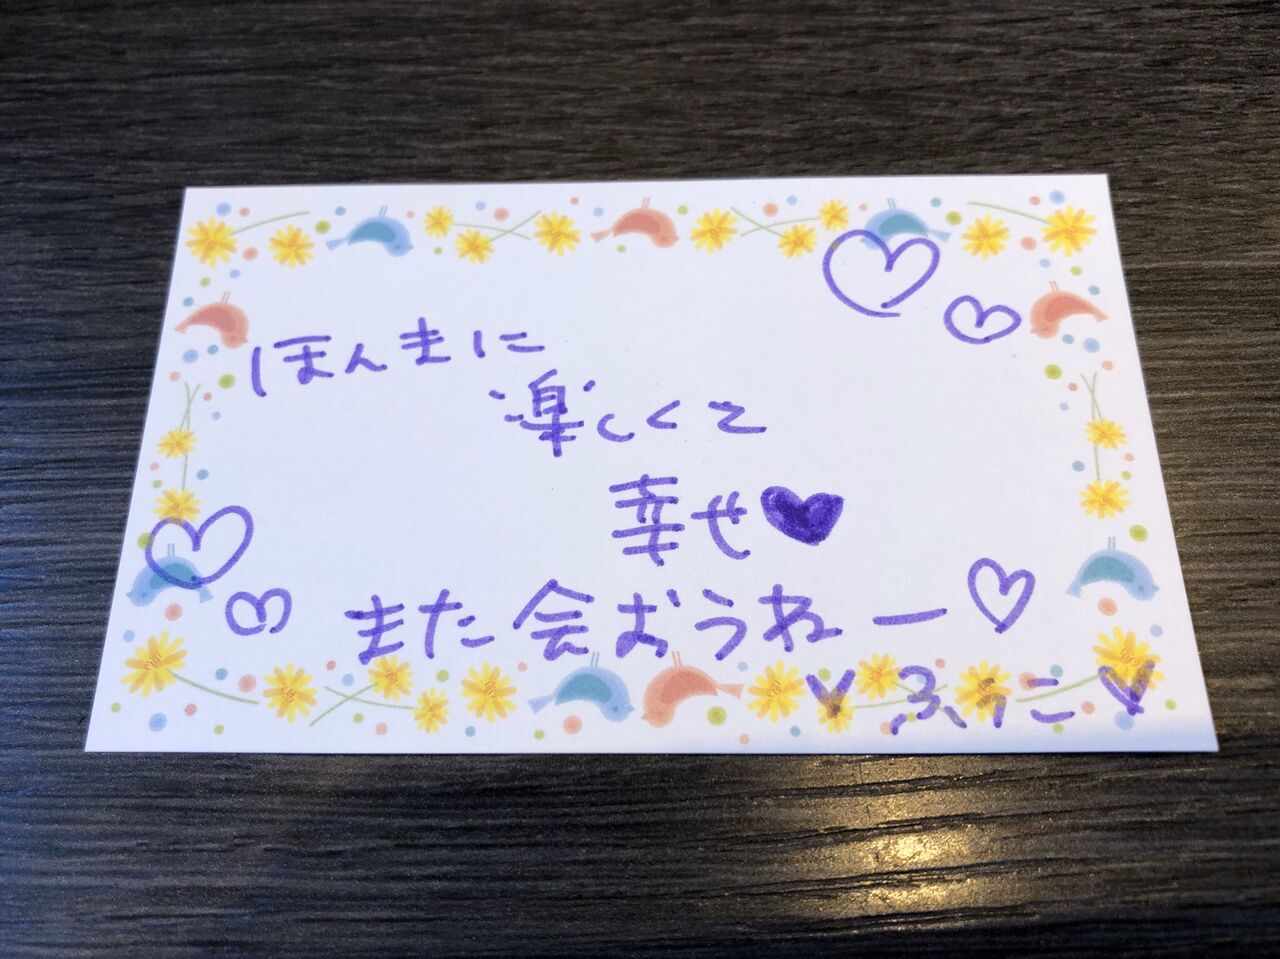 ほんまに
楽しくて
幸せ♥
また会おうねー♡
♥ふうこ♥